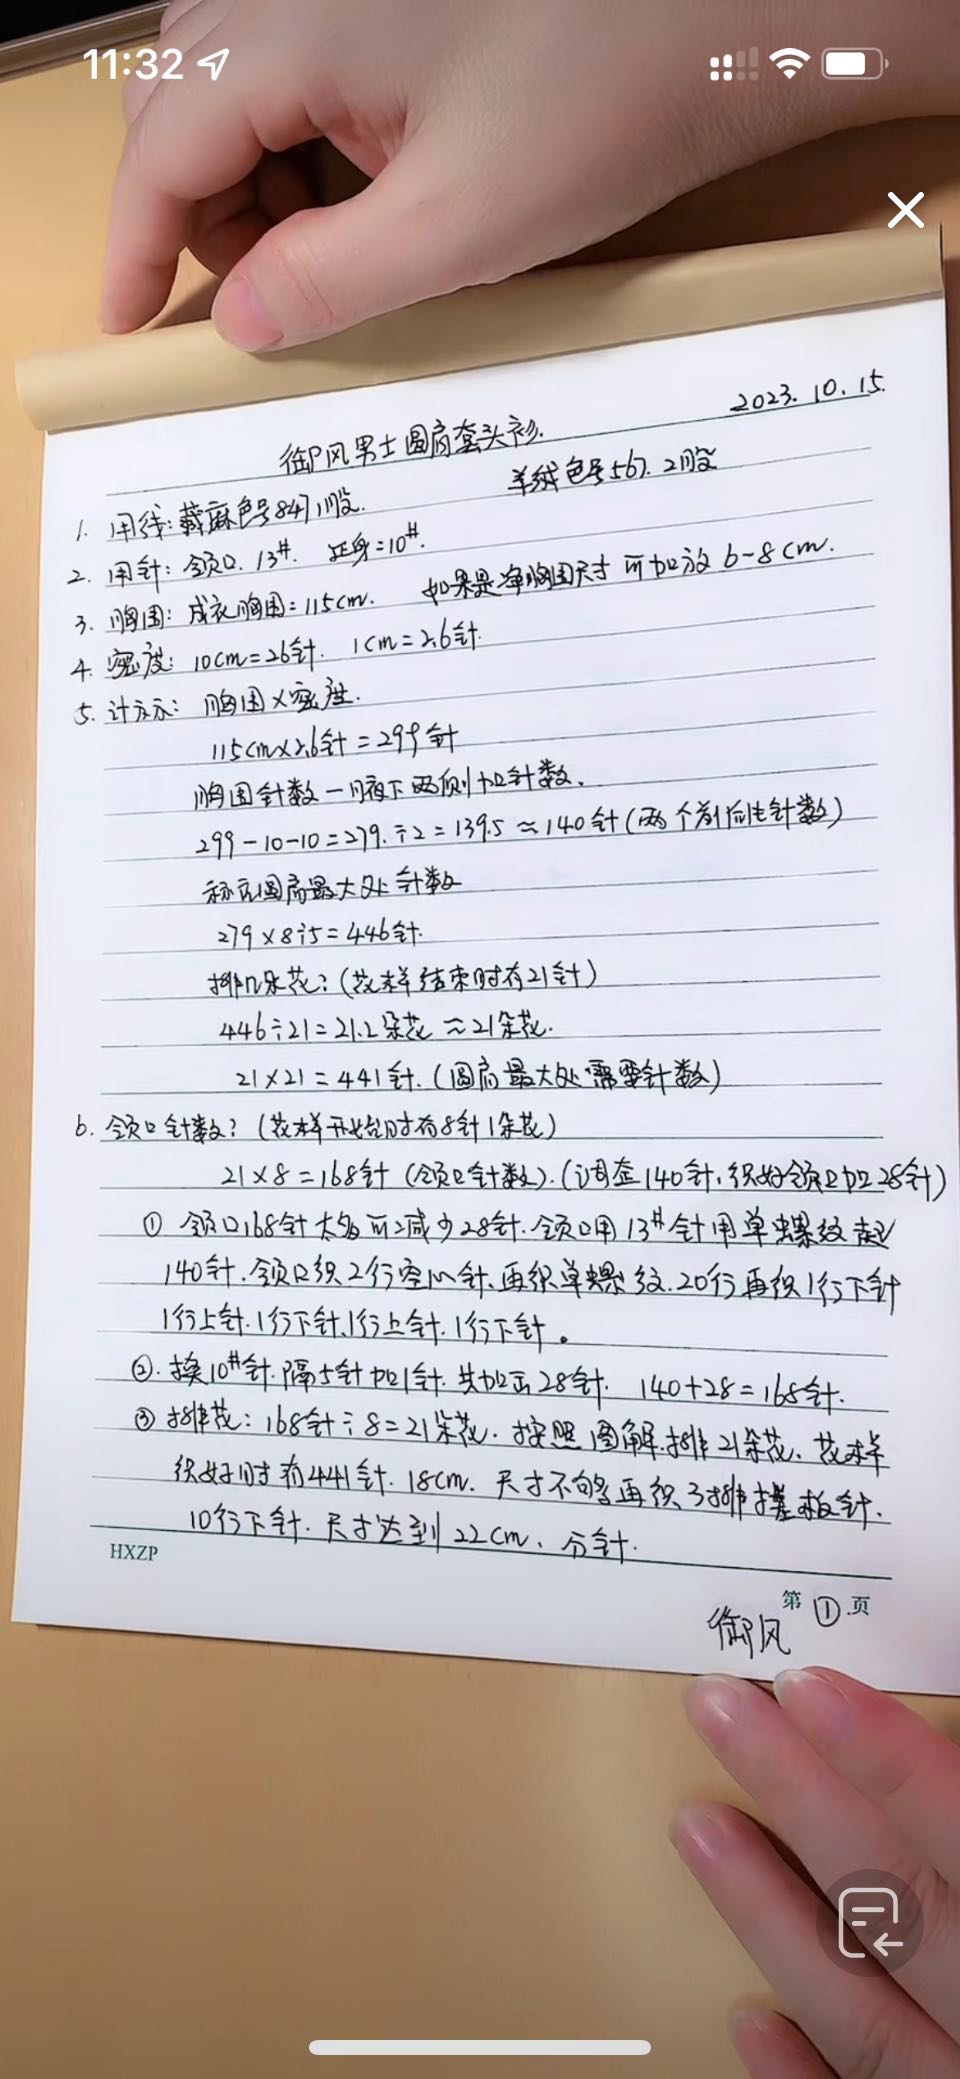 11:32
2023.10.15.
御风男士圆肩套头衫.
1. 用线:蓖麻色号847 1股. 羊绒色号567. 2股
2. 用针: 领口. 13#. 正身=10#.
3. 胸围: 成衣胸围=115cm. 如果是净胸围尺寸可加放6-8cm.
4. 密度: 10cm=26针. 1cm=2.6针.
5. 计示: 胸围×密度.
115cm×2.6针=299针
胸围针数-腋下两侧加针数.
299-10-10=279.÷2=139.5≈140针(两个前后片针数)
圆肩最大处针数
279×8÷5=446针.
排几朵花?(花样结束时有21针)
446÷21=21.2朵花≈21朵花.
21×21=441针.(圆肩最大处需要针数)
6. 领口针数?(花样开始时有8针1朵花)
21×8=168针(领口针数).(调整140针,织好领口加28针)
① 领口168针太多可减少28针.领口用13#针用单螺纹起
140针.领口织2行空心针.再织单螺纹.20行再织1行下针
1行上针.1行下针.1行上针.1行下针。
②.换10#针.隔5针加1针.共加出28针. 140+28=168针.
③排花:168针÷8=21朵花.按照图解.排21朵花.花样
织好时有441针.18cm.尺寸不够再织3排搓板针.
10行下针.尺寸达到22cm.分针.
HXZP
第①.页
御风